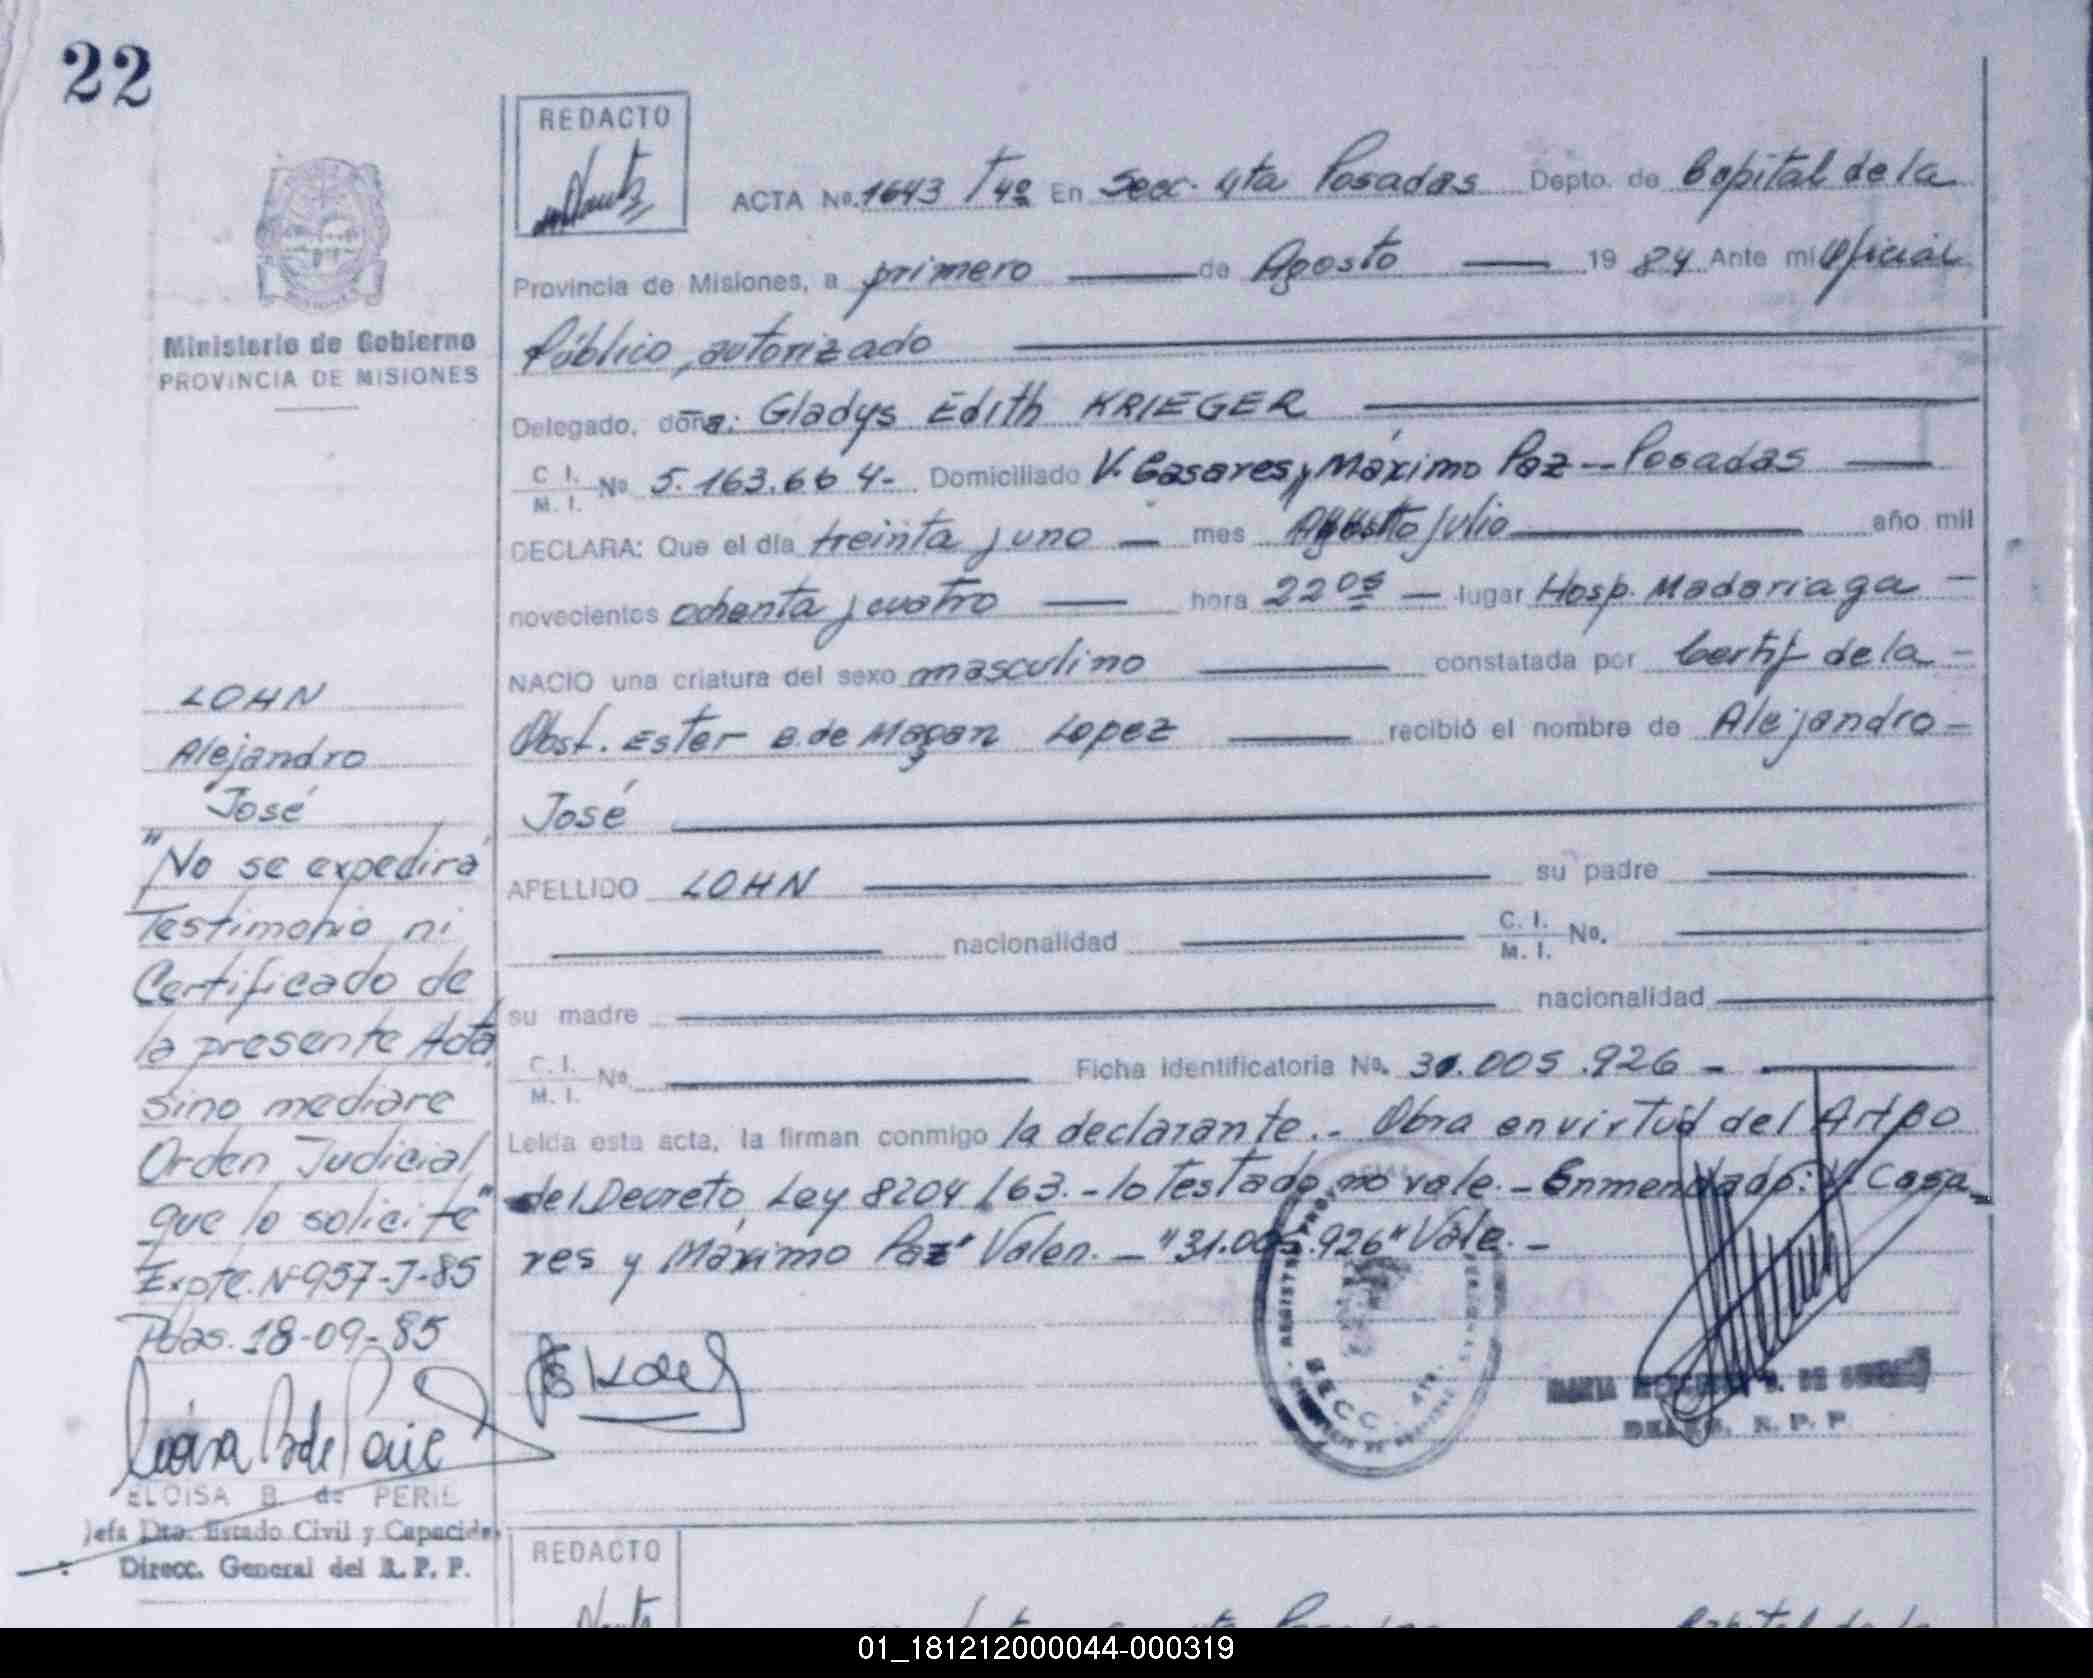 22
REDACTO
ACTA No. 1643 Tº 4º En Secc. 4ta Posadas Depto. de Capital de la
Provincia de Misiones, a primero de Agosto 1984 Ante mi Oficial
Público, autorizado
Delegado, doña: Gladys Edith KRIEGER
C. I.
M. I. No 5.163.664- Domiciliado V. Casares y Máximo Paz - Posadas
DECLARA: Que el día treinta y uno mes Agosto Julio año mil
novecientos ochenta y cuatro hora 22 05 lugar Hosp. Madariaga
NACIO una criatura del sexo masculino constatada por Certif de la
Obst. Ester E. de Magan Lopez recibió el nombre de Alejandro
José
APELLIDO LOHN su padre
nacionalidad C. I.
M. I. No.
su madre nacionalidad
C. I.
M. I. No. Ficha identificatoria No. 31.005.926 -
Leída esta acta, la firman conmigo la declarante.- Obra en virtud del Art 80
del Decreto Ley 8204/63.- lo testado no vale.- Enmendado: "V. Casa
res y Máximo Paz" Valen.- "31.005.926" Vale.-
Ministerio de Gobierno
PROVINCIA DE MISIONES
LOHN
Alejandro
José
"No se expedirá
Testimonio ni
Certificado de
la presente Acta
sino mediare
Orden Judicial
que lo solicite"
Expte. Nº 957-J-85
Pdas. 18-09-85
ELOISA B. de PERIE
Jefa Dto. Estado Civil y Capacidad
Direcc. General del R. P. P.
SECC. 4ta.
DE
R. P. P.
REDACTO
01_181212000044-000319